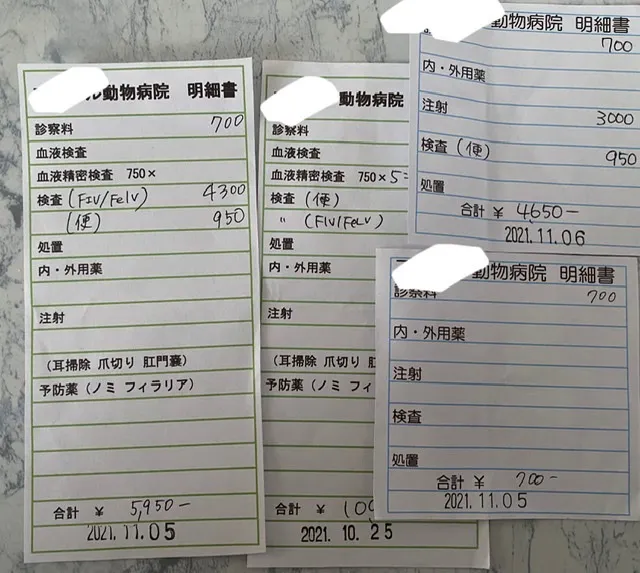 動物病院 明細書
診察料 700
血液検査
血液精密検査 750×
検査 (FIV/FeLV) 4300
(便) 950
処置
内・外用薬
注射
(耳掃除 爪切り 肛門嚢)
予防薬 (ノミ フィラリア)
合計 ¥ 5,950-
2021.11.05
動物病院
診察料
血液検査
血液精密検査 750×5=
検査 (便)
〃 (FIV/FeLV)
処置
内・外用薬
注射
(耳掃除 爪切り 肛
予防薬 (ノミ フィ
合計 ¥
2021.10.25
動物病院 明細書
700
内・外用薬
注射 3000
検査 (便) 950
処置
合計 ¥ 4650-
2021.11.06
動物病院 明細書
診察料 700
内・外用薬
注射
検査
処置
合計 ¥ 700-
2021.11.05